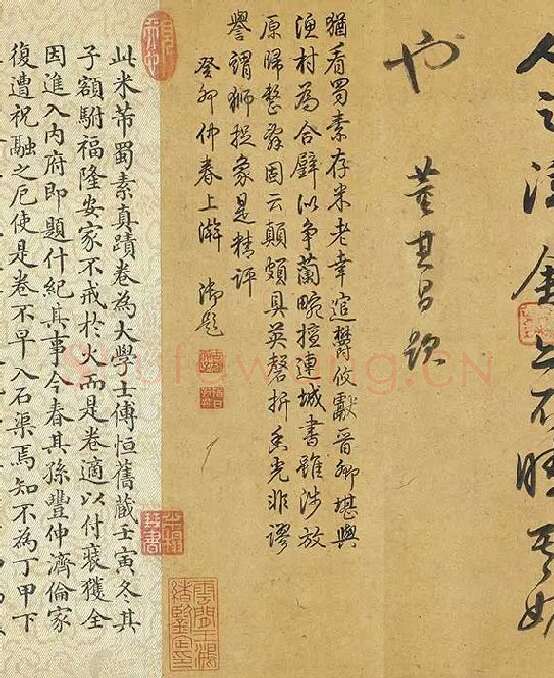 也
董其昌跋
猶看蜀素存米老幸逭鬱攸獻晉卿堪與
漁村為合璧以爭蘭畹擅連城書雖涉放
原歸整固云顛頗具英磬折香光非謬
譽謂獅捉象是精評
癸卯仲春上澣 御題
此米芾蜀素真蹟卷為大學士傅恒舊藏壬寅冬其
子額駙福隆安家不戒於火而是卷適以付裝獲全
因進入內府即題什紀其事今春其孫豐伸濟倫家
復遭祝融之厄使是卷不早入石渠焉知不為丁甲下